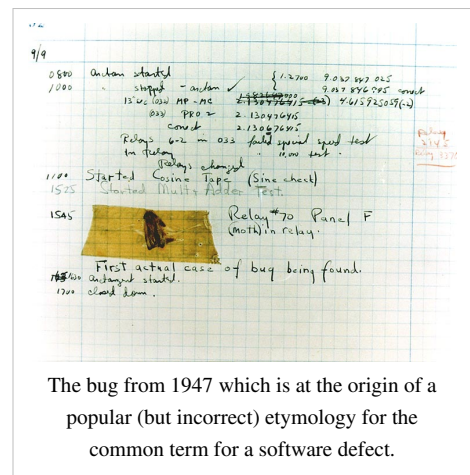 9/9
0800 Antan started
1000 " stopped - antan ✓ { 1.2700 9.037 847 025
9.037 846 995 correct
13"uc (032) MP-MC 2.130476415 4.615925059(-2)
(033) PRO 2 2.130476415
correct 2.130676415
Relays 6-2 in 033 failed special speed test
in Relay " 10.000 test .
Relay
2145
Relay 3370
Relays changed
1100 Started Cosine Tape (Sine check)
1525 Started Mult+Adder Test.
1545 Relay #70 Panel F
(moth) in relay.
First actual case of bug being found.
1630 antangent started.
1700 closed down.
The bug from 1947 which is at the origin of a
popular (but incorrect) etymology for the
common term for a software defect.